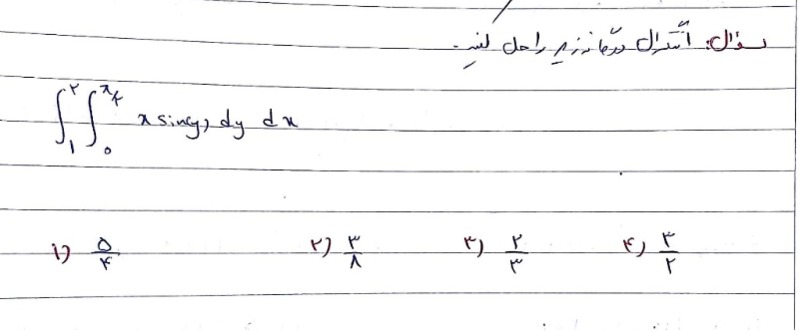 سؤال: انتگرال دوگانه زیر را حل کنید.
∫₁^۲ ∫₀ x sin(y) dy dx
۱) ۵/۴ ۲) ۳/۸ ۳) ۲/۳ ۴) ۳/۲